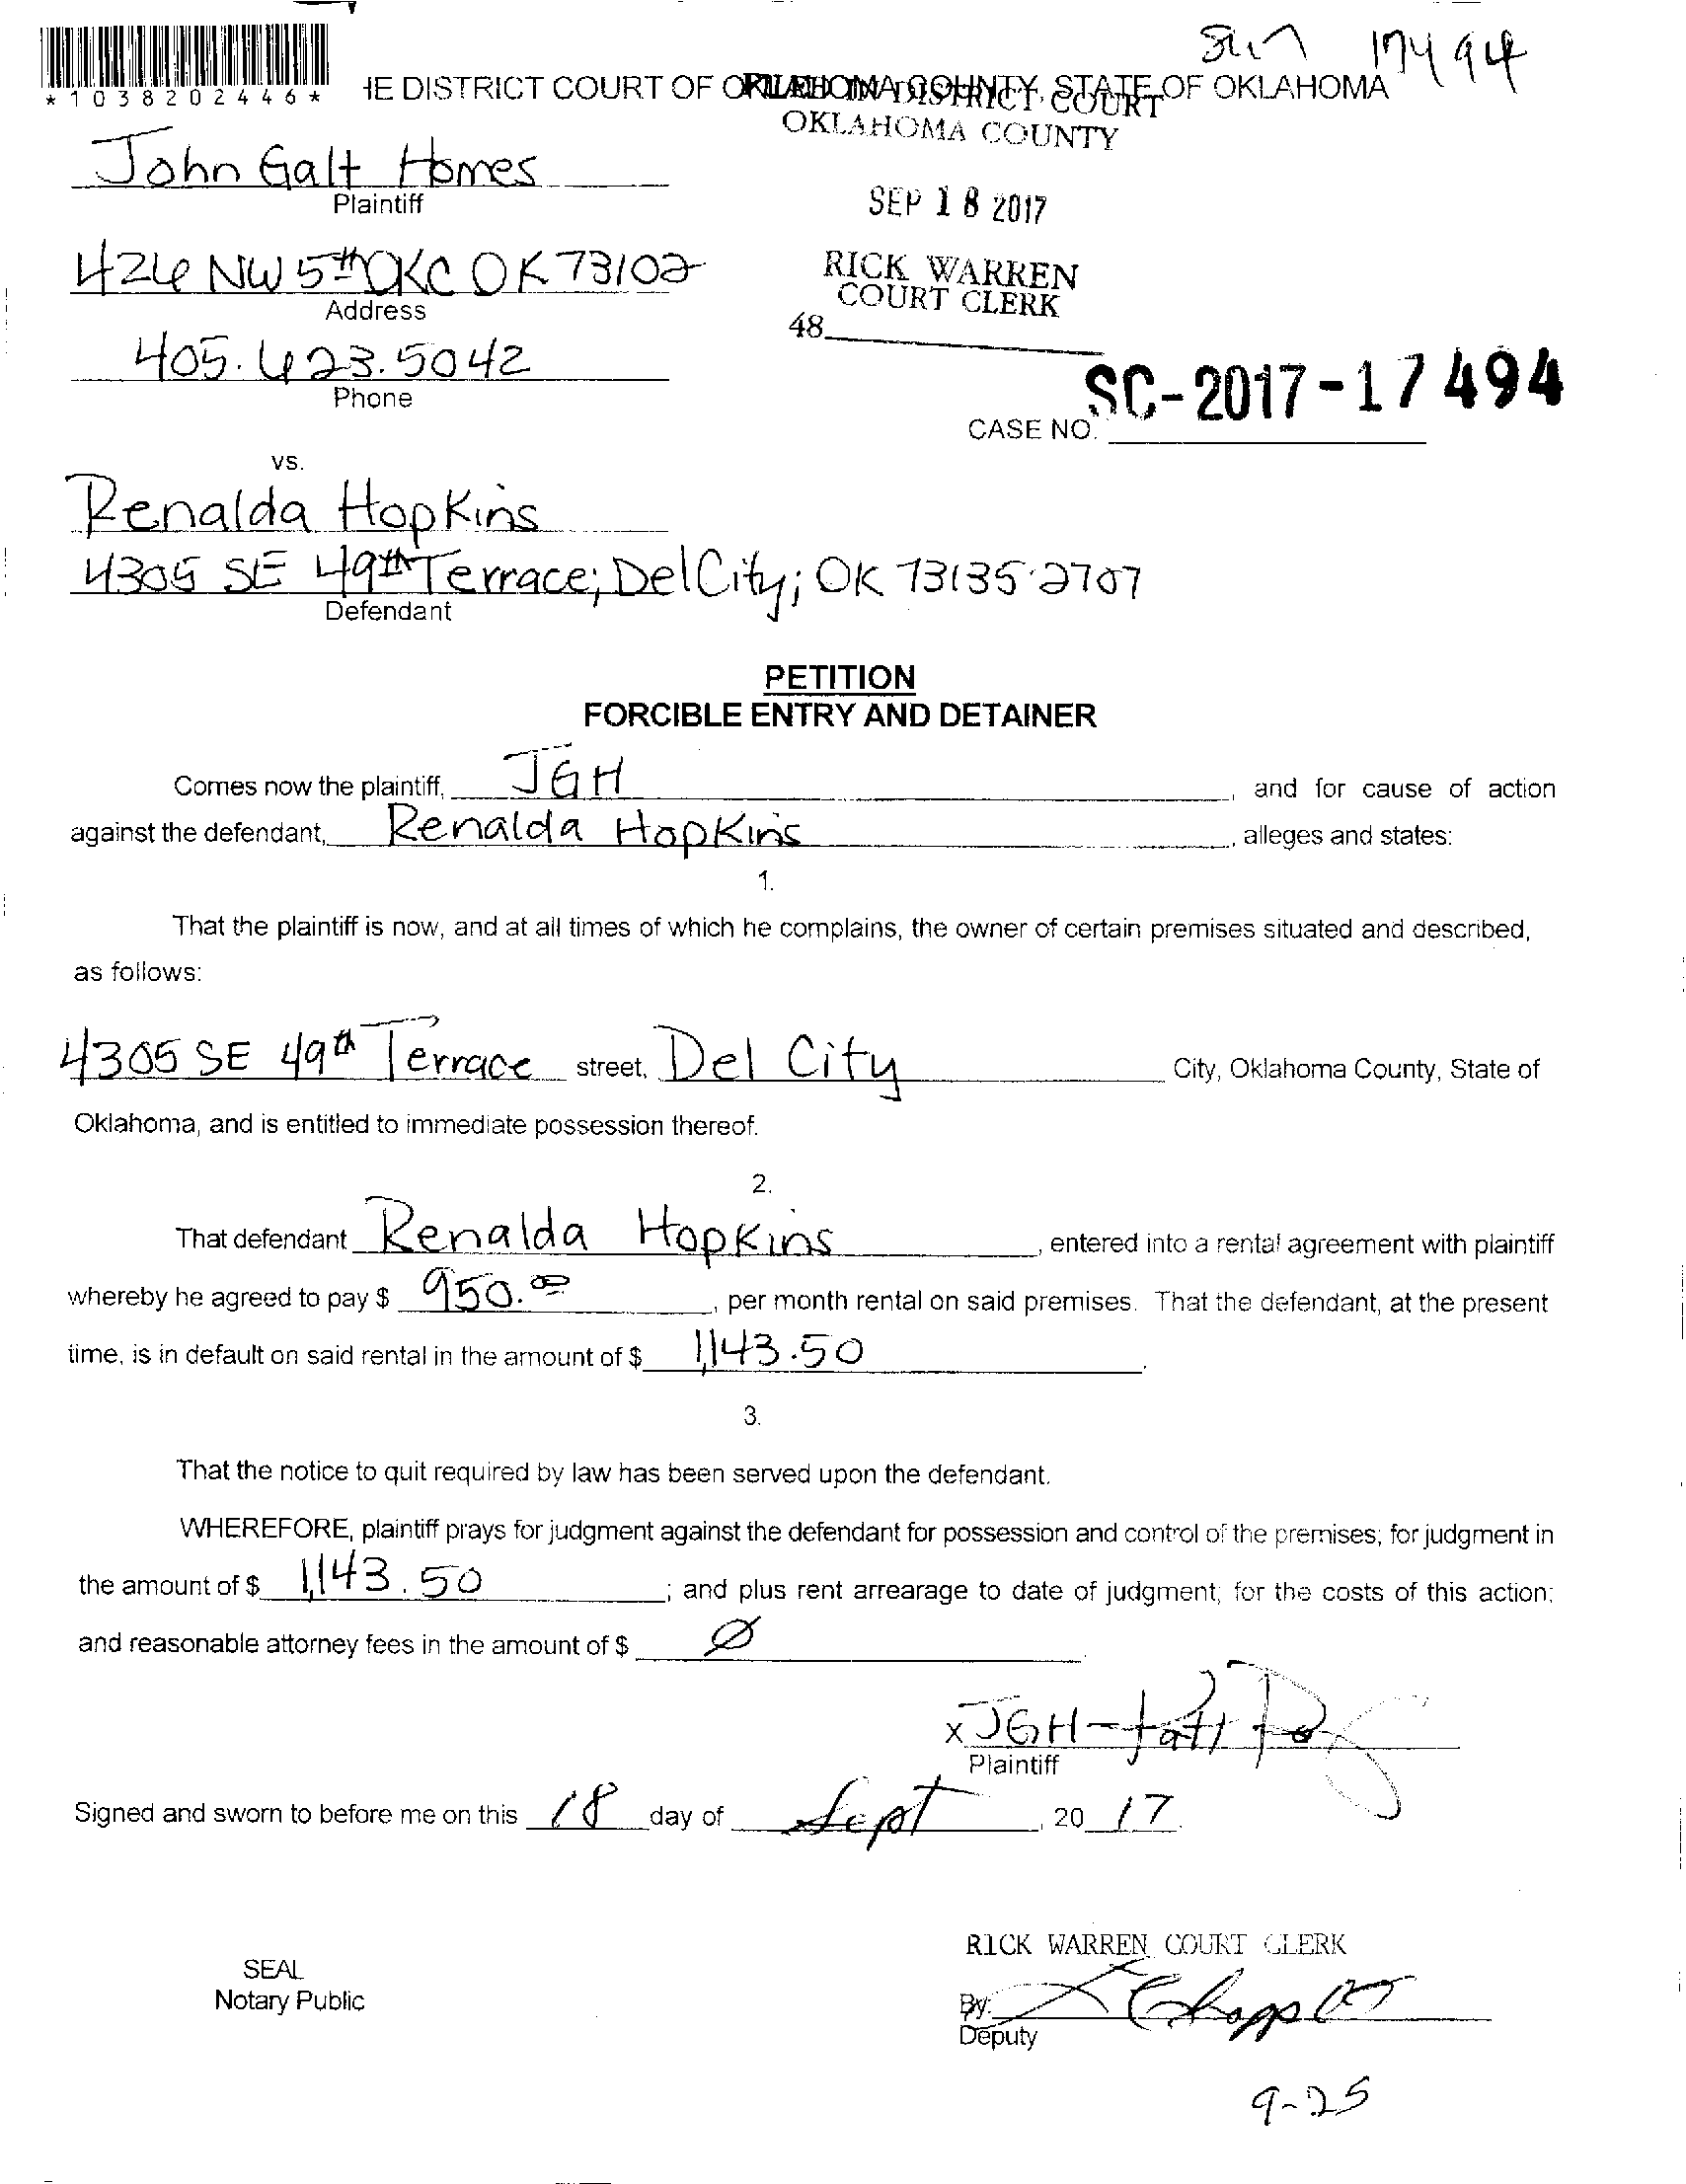 17494
*1038202446*
HE DISTRICT COURT OF OKLAHOMA COUNTY, STATE OF OKLAHOMA
FILED IN DISTRICT COURT
OKLAHOMA COUNTY
John Galt Homes
Plaintiff
SEP 18 2017
426 NW 5th OKC OK 73102
Address
RICK WARREN
COURT CLERK
48
405.623.5042
Phone
SC-2017-17494
CASE NO.
vs.
Renalda Hopkins
4305 SE 49th Terrace; Del City; OK 73135-2707
Defendant
PETITION
FORCIBLE ENTRY AND DETAINER
Comes now the plaintiff, JGH, and for cause of action
against the defendant, Renalda Hopkins, alleges and states:
1.
That the plaintiff is now, and at all times of which he complains, the owner of certain premises situated and described,
as follows:
4305 SE 49th Terrace street, Del City City, Oklahoma County, State of
Oklahoma, and is entitled to immediate possession thereof.
2.
That defendant Renalda Hopkins, entered into a rental agreement with plaintiff
whereby he agreed to pay $ 950.00, per month rental on said premises. That the defendant, at the present
time, is in default on said rental in the amount of $ 1,143.50.
3.
That the notice to quit required by law has been served upon the defendant.
WHEREFORE, plaintiff prays for judgment against the defendant for possession and control of the premises; for judgment in
the amount of $ 1,143.50; and plus rent arrearage to date of judgment; for the costs of this action;
and reasonable attorney fees in the amount of $ Ø
x JGH-
Plaintiff
Signed and sworn to before me on this 18 day of Sept, 20 17.
RICK WARREN COURT CLERK
SEAL
Notary Public
By:
Deputy
9-25